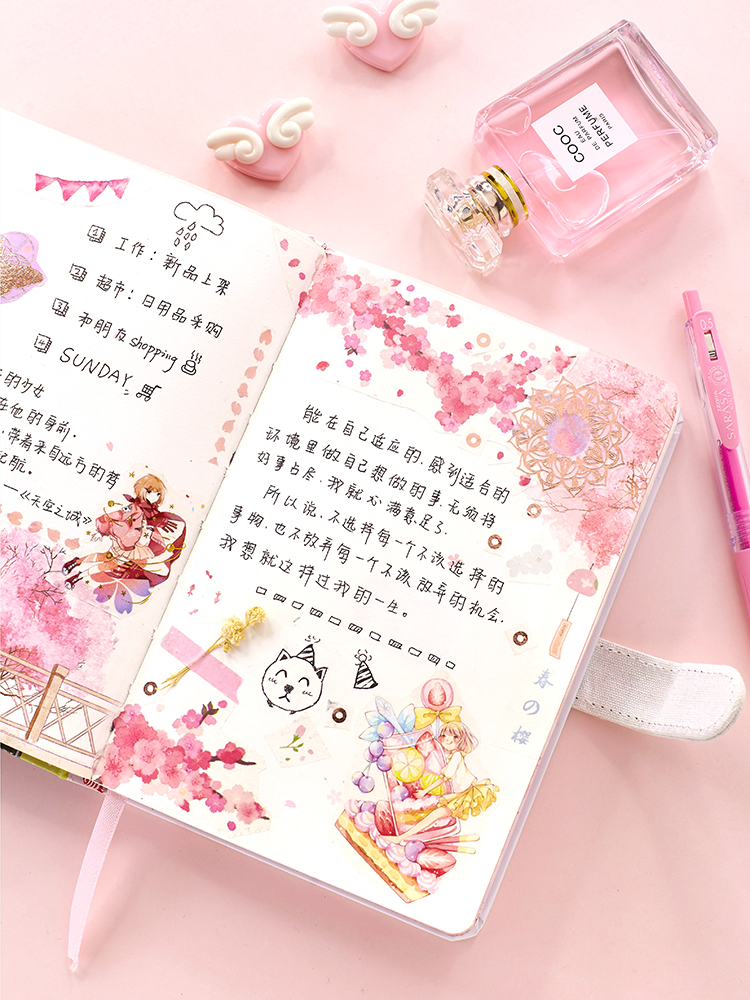 1 工作：新品上架
2 超市：日用品采购
3 和朋友shopping
4 SUNDAY
的少女
在他的身前.
,带着来自远方的梦
起航。
——《天空之城》
能在自己适应的,感到适合的
环境里做自己想做的事,无须将
好事占尽,我就心满意足了.
所以说,不选择每一个不该选择的
事物,也不放弃每一个不该放弃的机会.
我想就这样过我的一生。
春の樱
COOC
PERFUME
EAU
DE PARFUM
PARIS
0.5
SARASA